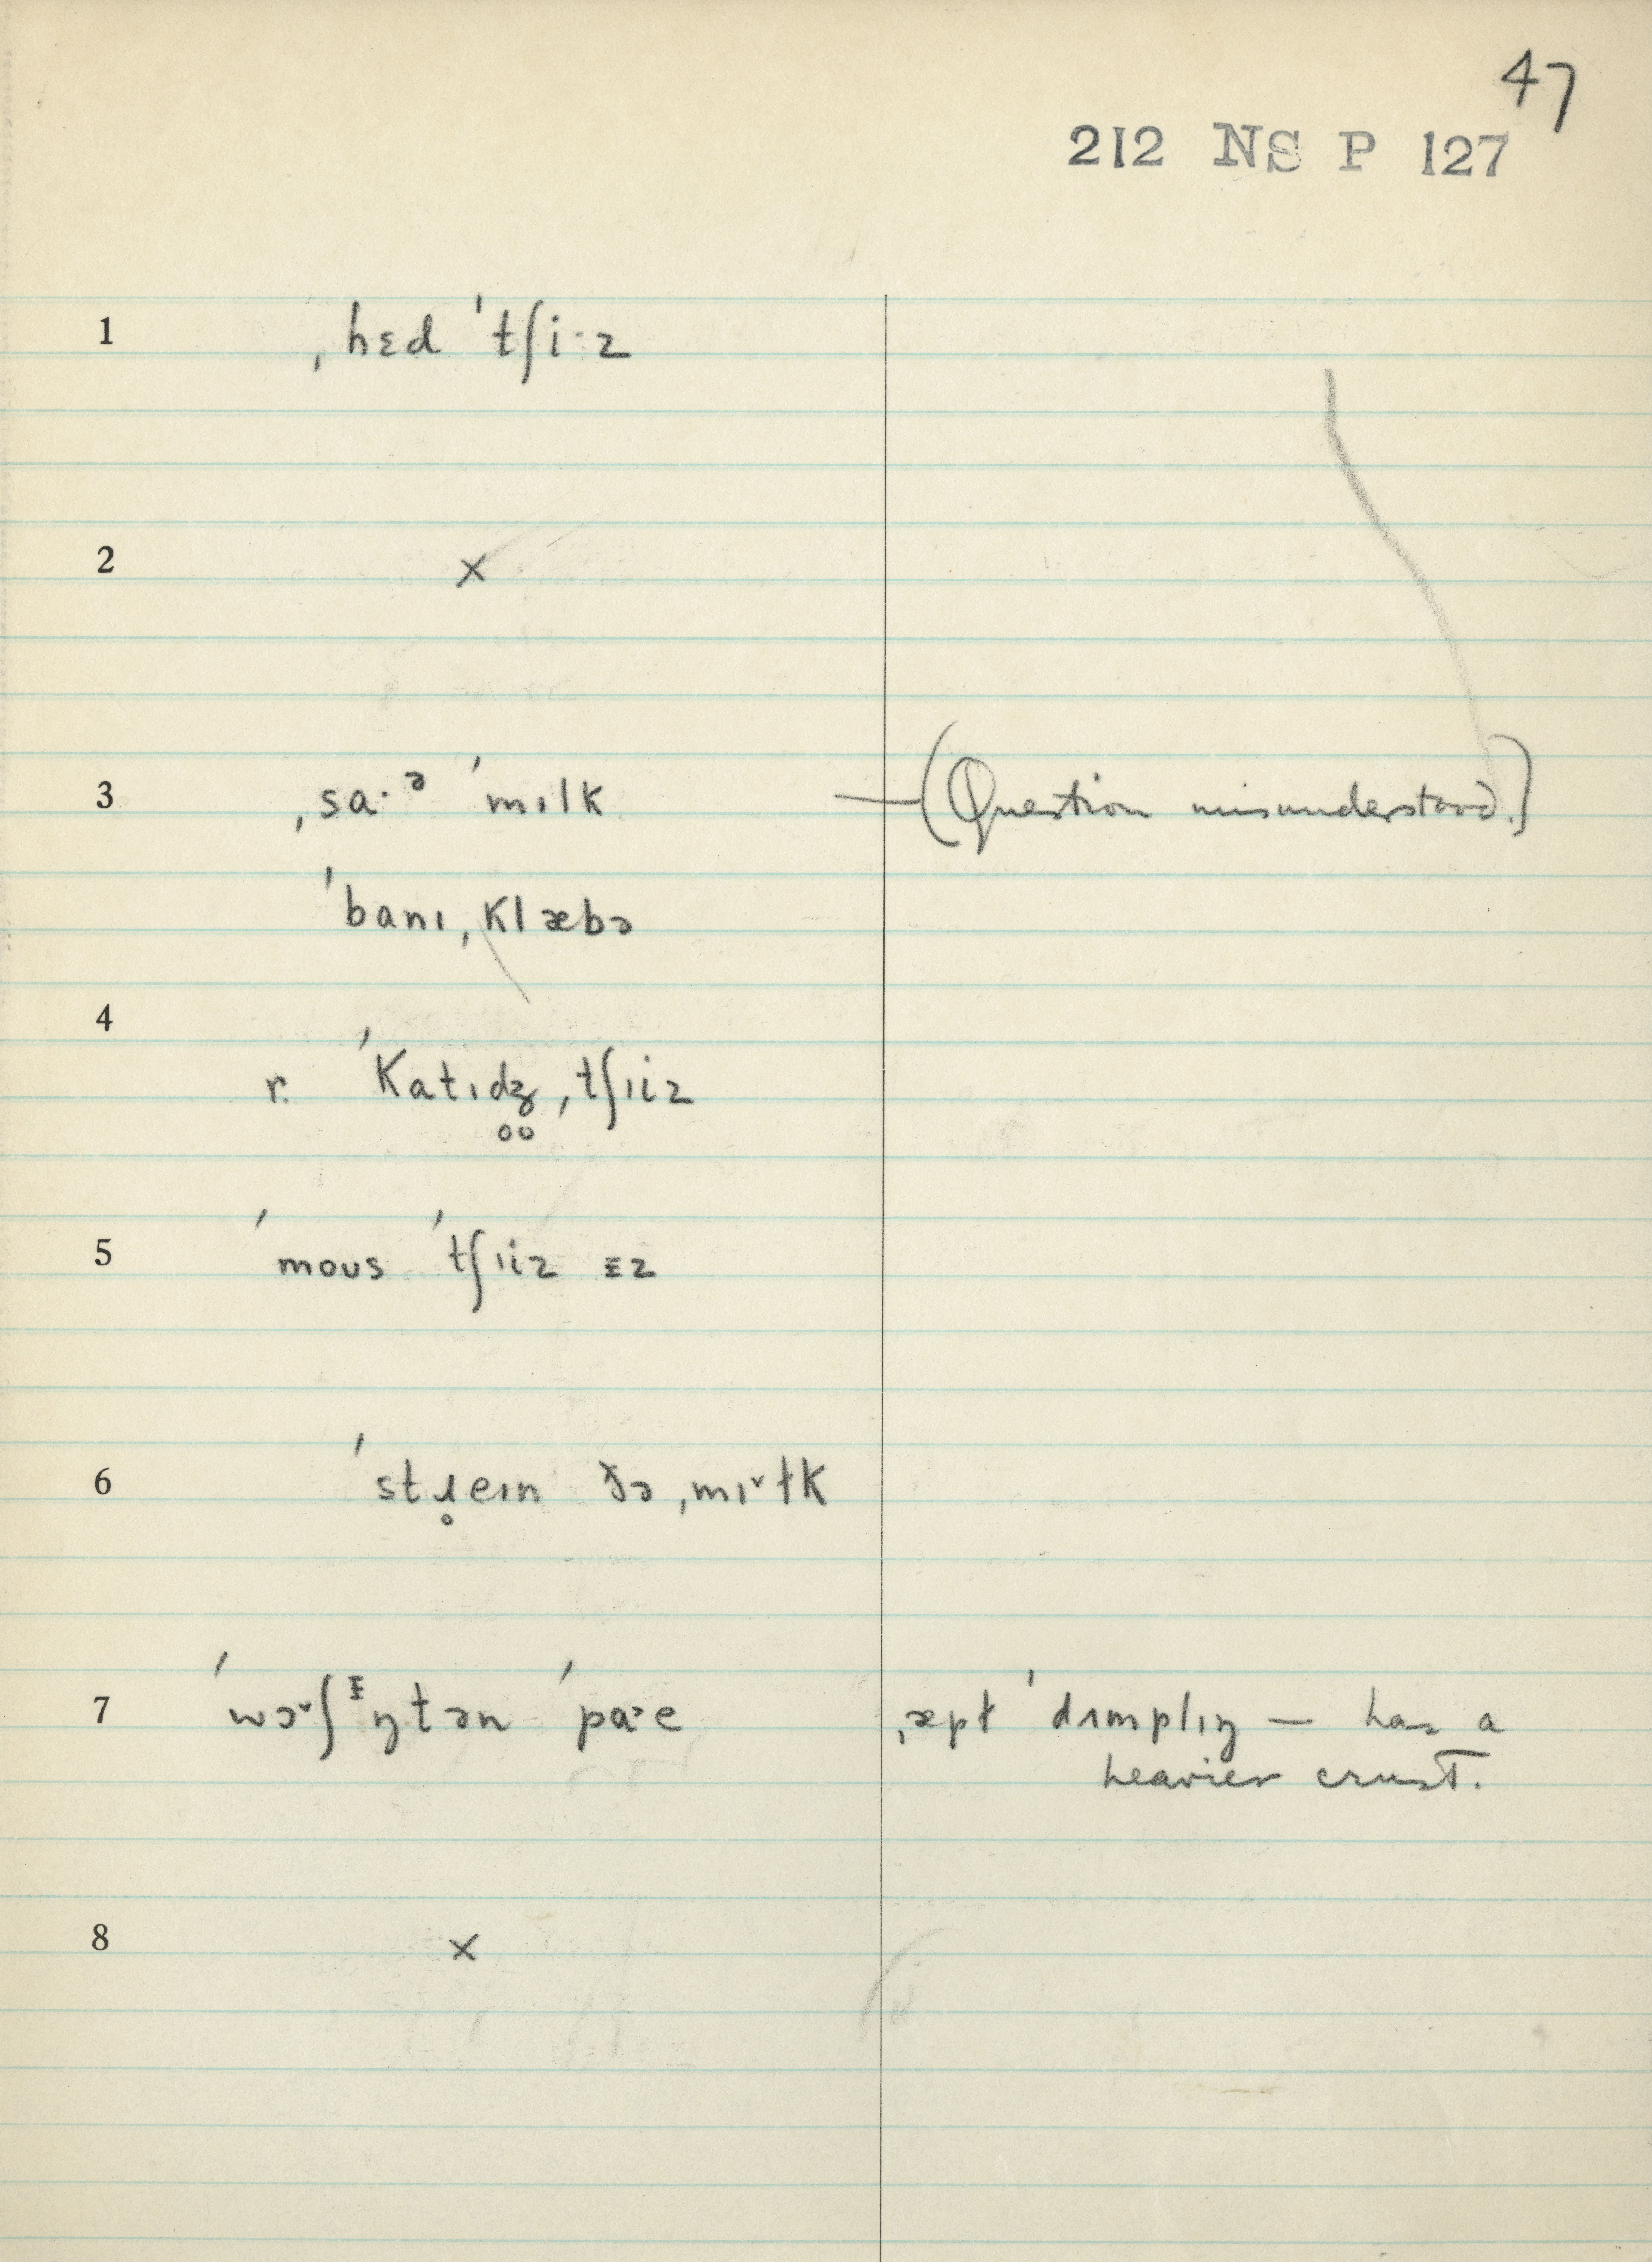 47
212 NS P 127
1 ˌhɛd ˈtʃi·z
2 ×
3 ˌsa·ᵊ ˈmɪlk —(Question misunderstood.)
ˈbanɪˌklæbə
4
r. ˈkatɪd̥ʒ̊ˌtʃɪiz
5 ˈmoʊs ˈtʃɪiz ᵻz
6 ˈstɹ̥eɪn ðə ˌmɪ˅ɫk
7 ˈwɔ˅ʃŋtən ˈpa˃e ˌæpɫ ˈdʌmplɪŋ — has a
heavier crust.
8 ×